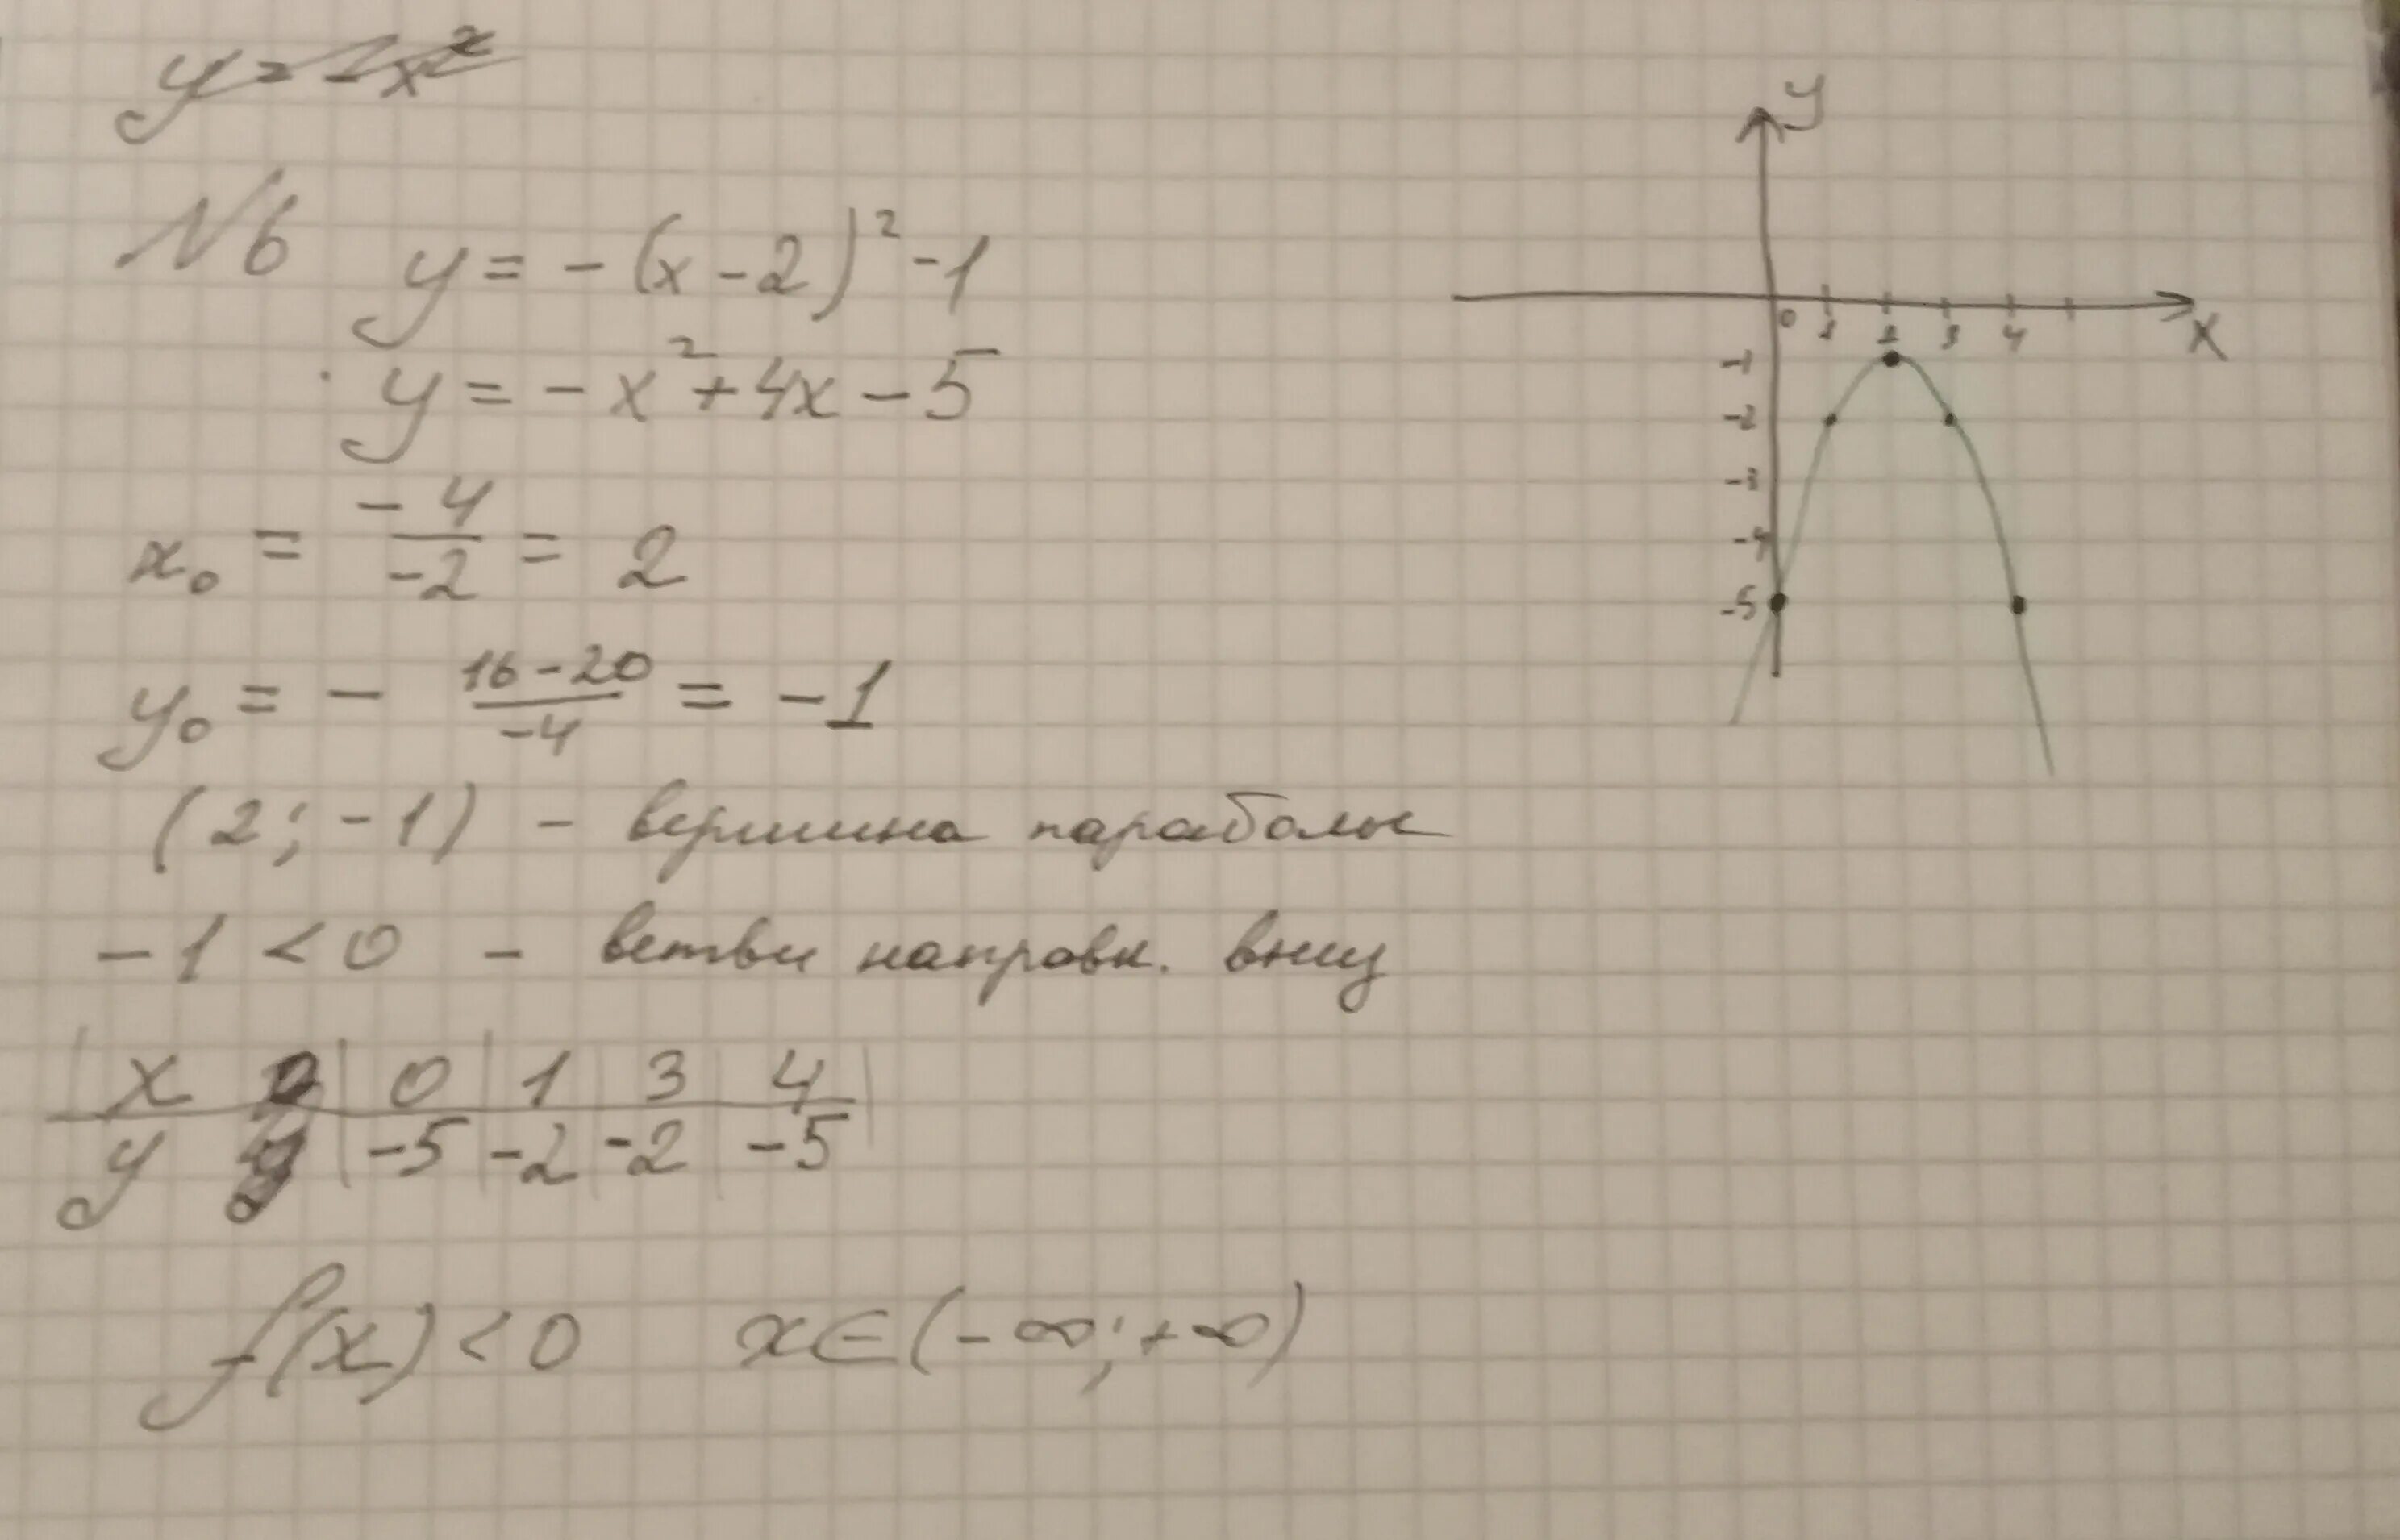 y = -x²
№6 y = -(x-2)² - 1
y = -x² + 4x - 5
x₀ = -4/-2 = 2
y₀ = - 16-20/-4 = -1
(2; -1) - вершина параболы
-1 < 0 - ветви направл. вниз
x 0 1 3 4
y -5 -2 -2 -5
f(x) < 0 x∈(-∞;+∞)
y
0 1 2 3 4
x
-1
-2
-3
-4
-5